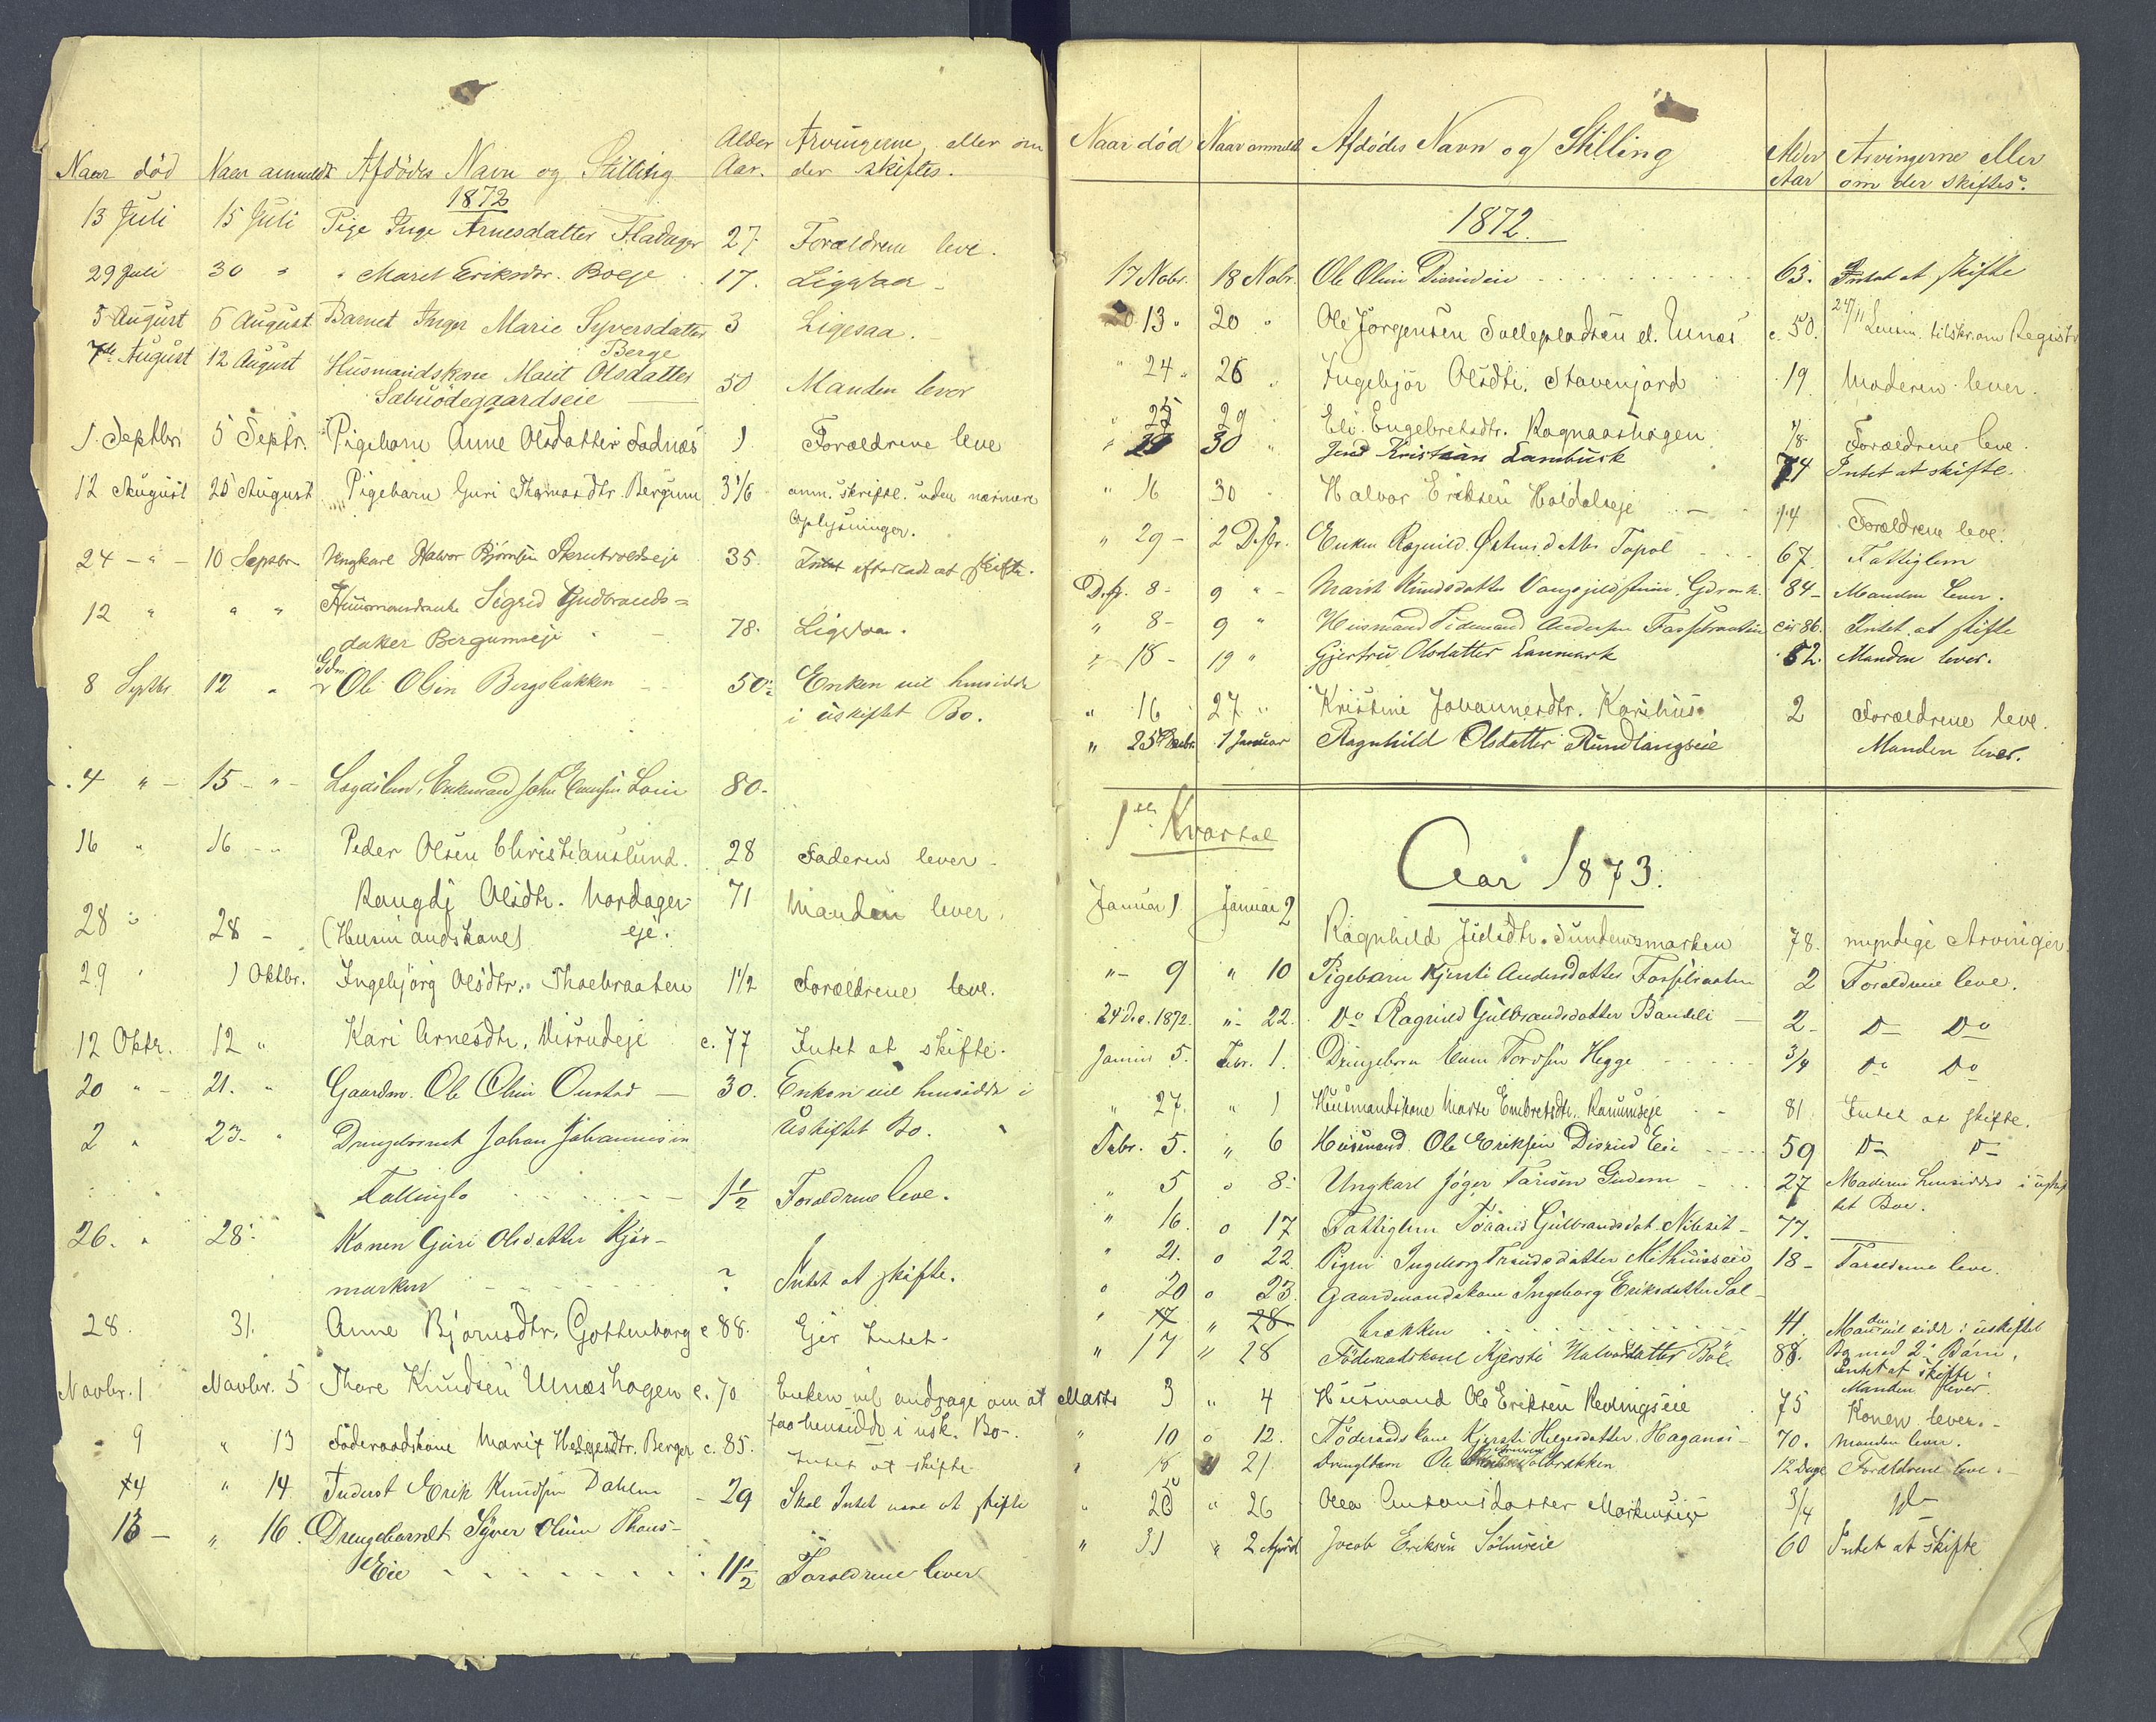 Naar død Naar anmeldt Afdødes Navn og Stilling Alder Aar. Arvingerne, eller om der skiftes.
1872
13 Juli 15 Juli Pige Inge Arnesdatter Fladager 27 Forældrene leve.
29 Juli 30 " " Marit Eriksdtr. Boeje 17. Ligesaa
5 August 6 August Barnet Inger Marie Syversdatter 3 Ligesaa.
Berge
7de August 12 August Husmandskone Marit Olsdatter 50 Manden lever
Sæbuødegaardseie
1 Septbr. 5 Septr. Pigebarn Anne Olsdatter Fodnæs 1 Forældrene leve
12 August 25 August Pigebarn Guri Thomasdtr. Bergum 3 1/6 anm. skriftl. uden nærmere
Oplysninger.
24 - " - 10 Septbr. Ungkarl Halvor Bjørnsen 35. Intet efterladt at skifte.
12 " " " Huusmandsenke Sigrid Gudbrands=
datter Bergumseje 78. Ligesaa.
8 Septbr 12 " Gdm. Ole Olsen Bergsbakken 50 Enken vil hensidde
i uskiftet Bo.
4 " - 15 - " - Lægdslem, Enkemand John 80.
16 " 16 - " Peder Olsen Christianslund. 28 Faderen lever
Rangdi Olsdtr. Nordager- 71 Manden lever.
28 " 28 - (Husmandskone) eje.
29 " 1 Oktbr. Ingebjørg Olsdtr. Thoebraaten 1 1/2 Forældrene leve.
12 Oktr. 12 " Kari Arnesdtr. Disrudeje c. 77 Intet at skifte.
20 " - 21. " Gaardm. Ole Olsen Onstad 30. Enken vil hensidde i
2 " 23. " Drengebarnet Johan Johannesen Uskiftet Bo.
Tollingb 1 1/2 Forældrene leve.
26. " 28 " Konen Guri Olsdatter Kjös-
marken ? Intet at skifte.
28. 31. Anne Bjørnsdtr. Gottenborg c 88. Ejer Intet.
Novbr. 1 Novbr. 5 Thore Knudsen Unæshagen c. 70 Enken vil andrage om at
faa hensidde i usk. Bo.
" 9 " 13 Føderaadskone Marit Helgesdtr. Berger c. 85. Intet at skifte
14 " 14 Inderst Erik Knudsen Dahlen 29 Skal Intet være at skifte
13 - " 16. Drengebarnet Syver Olsen Thons-
Eie 11 1/2 Forældrene lever
Naar død Naar anmeldt Afdødes Navn og Stilling Alder Aar Arvingerne eller om der skiftes.
1872.
17 Nobr. 18 Nobr. Ole Olsen Disrudeie 63. Intet at skifte
13 " 20 " Ole Jørgensen el. Unæs c. 50. 24/11 Lensm. tilskr. om Registr
" 24 " 26 " Ingebjör Olsdtr. Stavenjord 19 Moderen lever.
" 25 29 " Eli Engebretsdtr. Ragnaashagen 7/8 Forældrene leve
" 29 30 " Jens Kristian Lambusk 74 Intet at skifte.
" 16 30 " Halvor Eriksen Holdalseje 14 Forældrene leve.
" 29 - 2 Dcbr. Enken Ragnild Østensdatter Topol 67. Fattiglem
Dcbr. 8 - 9 " - Marit Knudsdatter Gdmk. 84 - Manden lever.
" 8 - 9 " Husmand Tidemand Andersen Fossbraaten cir 86. Intet at skifte
" 18 - 19 " Gjertru Olsdatter Lanmark 52 Manden lever.
" 16 27 " Kristine Johannesdtr. Karihus. 2 Forældrene leve.
" 25 Decbr. 1 Januar Ragnhild Olsdatter Rundlangseie Manden lever.
1ste Kvartal
Aar 1873.
Januar 1 Januar 2 Ragnhild Juelsdtr. Sundemsmarken 78. myndige Arvinger
" - 9 " 10 Pigebarn Kjersti Andersdatter Fossbraaten 2 Forældrene leve.
24 Dec. 1872. " - 22. Do Ragnild Gulbrandsdatter Bandeli 2 - Do Do
Januar 5. Febr. 1. Drengebarn Tordsen Hegge 3/4 Do Do
" 27. " 1 Huusmandskone Marte Embretsdtr. Ranumseje 81. Intet at skifte.
Febr. 5. " 6 Huusmand Ole Eriksen Disrud Eie 59 Do Do
" 5 o 8. Ungkarl 27 Moderen hensidder i uskif
tet Boe.
" 16. o 17 Fattiglem Gulbrandsdat. 77.
" 21. o 22. Pigen Ingeborg Trondsdatter 18 - Forældrene leve.
o 20 o 23. Gaardmandskone Ingeborg Eriksdatter Sol-
" 17 " 28 brækken 41. Manden vil sidde i uskiftet
" 17 " 28 Föderaadskone Kjersti Halvorsdatter Böe 88. Bo med 2 Børn.
Intet at skifte.
Manden lever.
Marts 3 " 4 Huusmand Ole Eriksen Revlingseie 75 Konen lever.
" 10 o 12. Föderaadskone Kjersti Helgesdatter Haganes 70. Manden lever.
" 18 " 21 Drengebarn Ole Solbrækken 12 Dage Forældrene leve.
" 20 " 26 Olea Antonsdatter Morkenseie 3/4 Do
" 31 " 2 April Jocob Eriksen Sölnseie 60 Intet at skifte